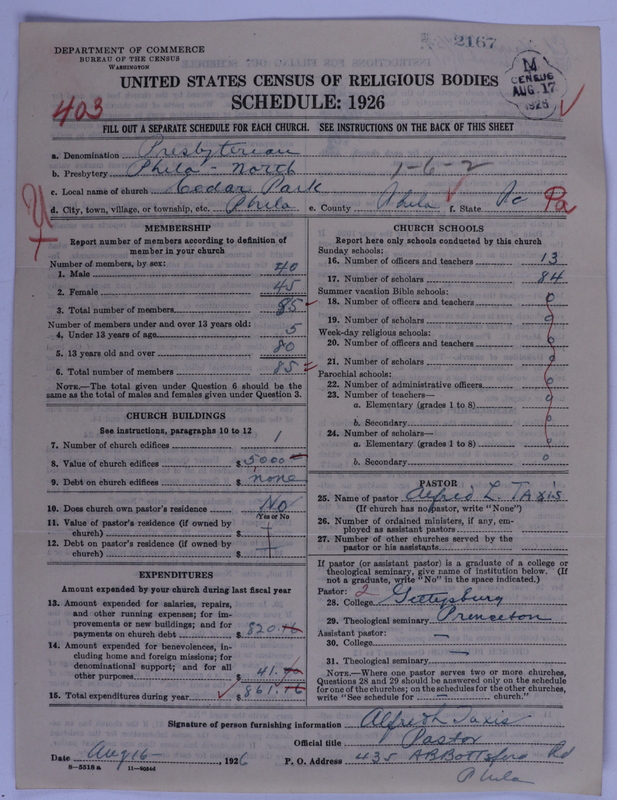 DEPARTMENT OF COMMERCE
BUREAU OF THE CENSUS
WASHINGTON
2167
M
CENSUS
AUG. 17
1926
UNITED STATES CENSUS OF RELIGIOUS BODIES
SCHEDULE: 1926
403
FILL OUT A SEPARATE SCHEDULE FOR EACH CHURCH. SEE INSTRUCTIONS ON THE BACK OF THIS SHEET
a. Denomination Presbyterian
b. Presbytery Phila - North 1-6-2
c. Local name of church Cedar Park
d. City, town, village, or township, etc. Phila e. County Phila f. State Pa Pa
MEMBERSHIP
Report number of members according to definition of
member in your church
Number of members, by sex:
1. Male 40
2. Female 45
3. Total number of members 85
Number of members under and over 13 years old:
4. Under 13 years of age 5
5. 13 years old and over 80
6. Total number of members 85
NOTE.—The total given under Question 6 should be the
same as the total of males and females given under Question 3.
CHURCH BUILDINGS
See instructions, paragraphs 10 to 12
7. Number of church edifices 1
8. Value of church edifices $ 5000
9. Debt on church edifices $ none
10. Does church own pastor's residence? No
(Yes or No)
11. Value of pastor's residence (if owned by
church) $
12. Debt on pastor's residence (if owned by
church) $
EXPENDITURES
Amount expended by your church during last fiscal year
13. Amount expended for salaries, repairs,
and other running expenses; for im-
provements or new buildings; and for
payments on church debt $ 820.16
14. Amount expended for benevolences, in-
cluding home and foreign missions; for
denominational support; and for all
other purposes $ 41.
15. Total expenditures during year $ 861.16
CHURCH SCHOOLS
Report here only schools conducted by this church
Sunday schools:
16. Number of officers and teachers 13
17. Number of scholars 84
Summer vacation Bible schools:
18. Number of officers and teachers 0
19. Number of scholars 0
Week-day religious schools:
20. Number of officers and teachers 0
21. Number of scholars 0
Parochial schools:
22. Number of administrative officers 0
23. Number of teachers—
a. Elementary (grades 1 to 8) 0
b. Secondary 0
24. Number of scholars—
a. Elementary (grades 1 to 8) 0
b. Secondary 0
PASTOR
25. Name of pastor Alfred L. Taxis
(If church has no pastor, write "None")
26. Number of ordained ministers, if any, em-
ployed as assistant pastors
27. Number of other churches served by the
pastor or his assistants
If pastor (or assistant pastor) is a graduate of a college or
theological seminary, give name of institution below. (If
not a graduate, write "No" in the space indicated.)
Pastor: 2
28. College Gettysburg
29. Theological seminary Princeton
Assistant pastor:
30. College —
31. Theological seminary —
NOTE.—Where one pastor serves two or more churches,
Questions 28 and 29 should be answered only on the schedule
for one of the churches; on the schedules for the other churches,
write "See schedule for — church."
Signature of person furnishing information Alfred L Taxis
Official title Pastor
Date Aug 16 —, 1926 P. O. Address 435 Abbottsford Rd
Phila
8—5518 a